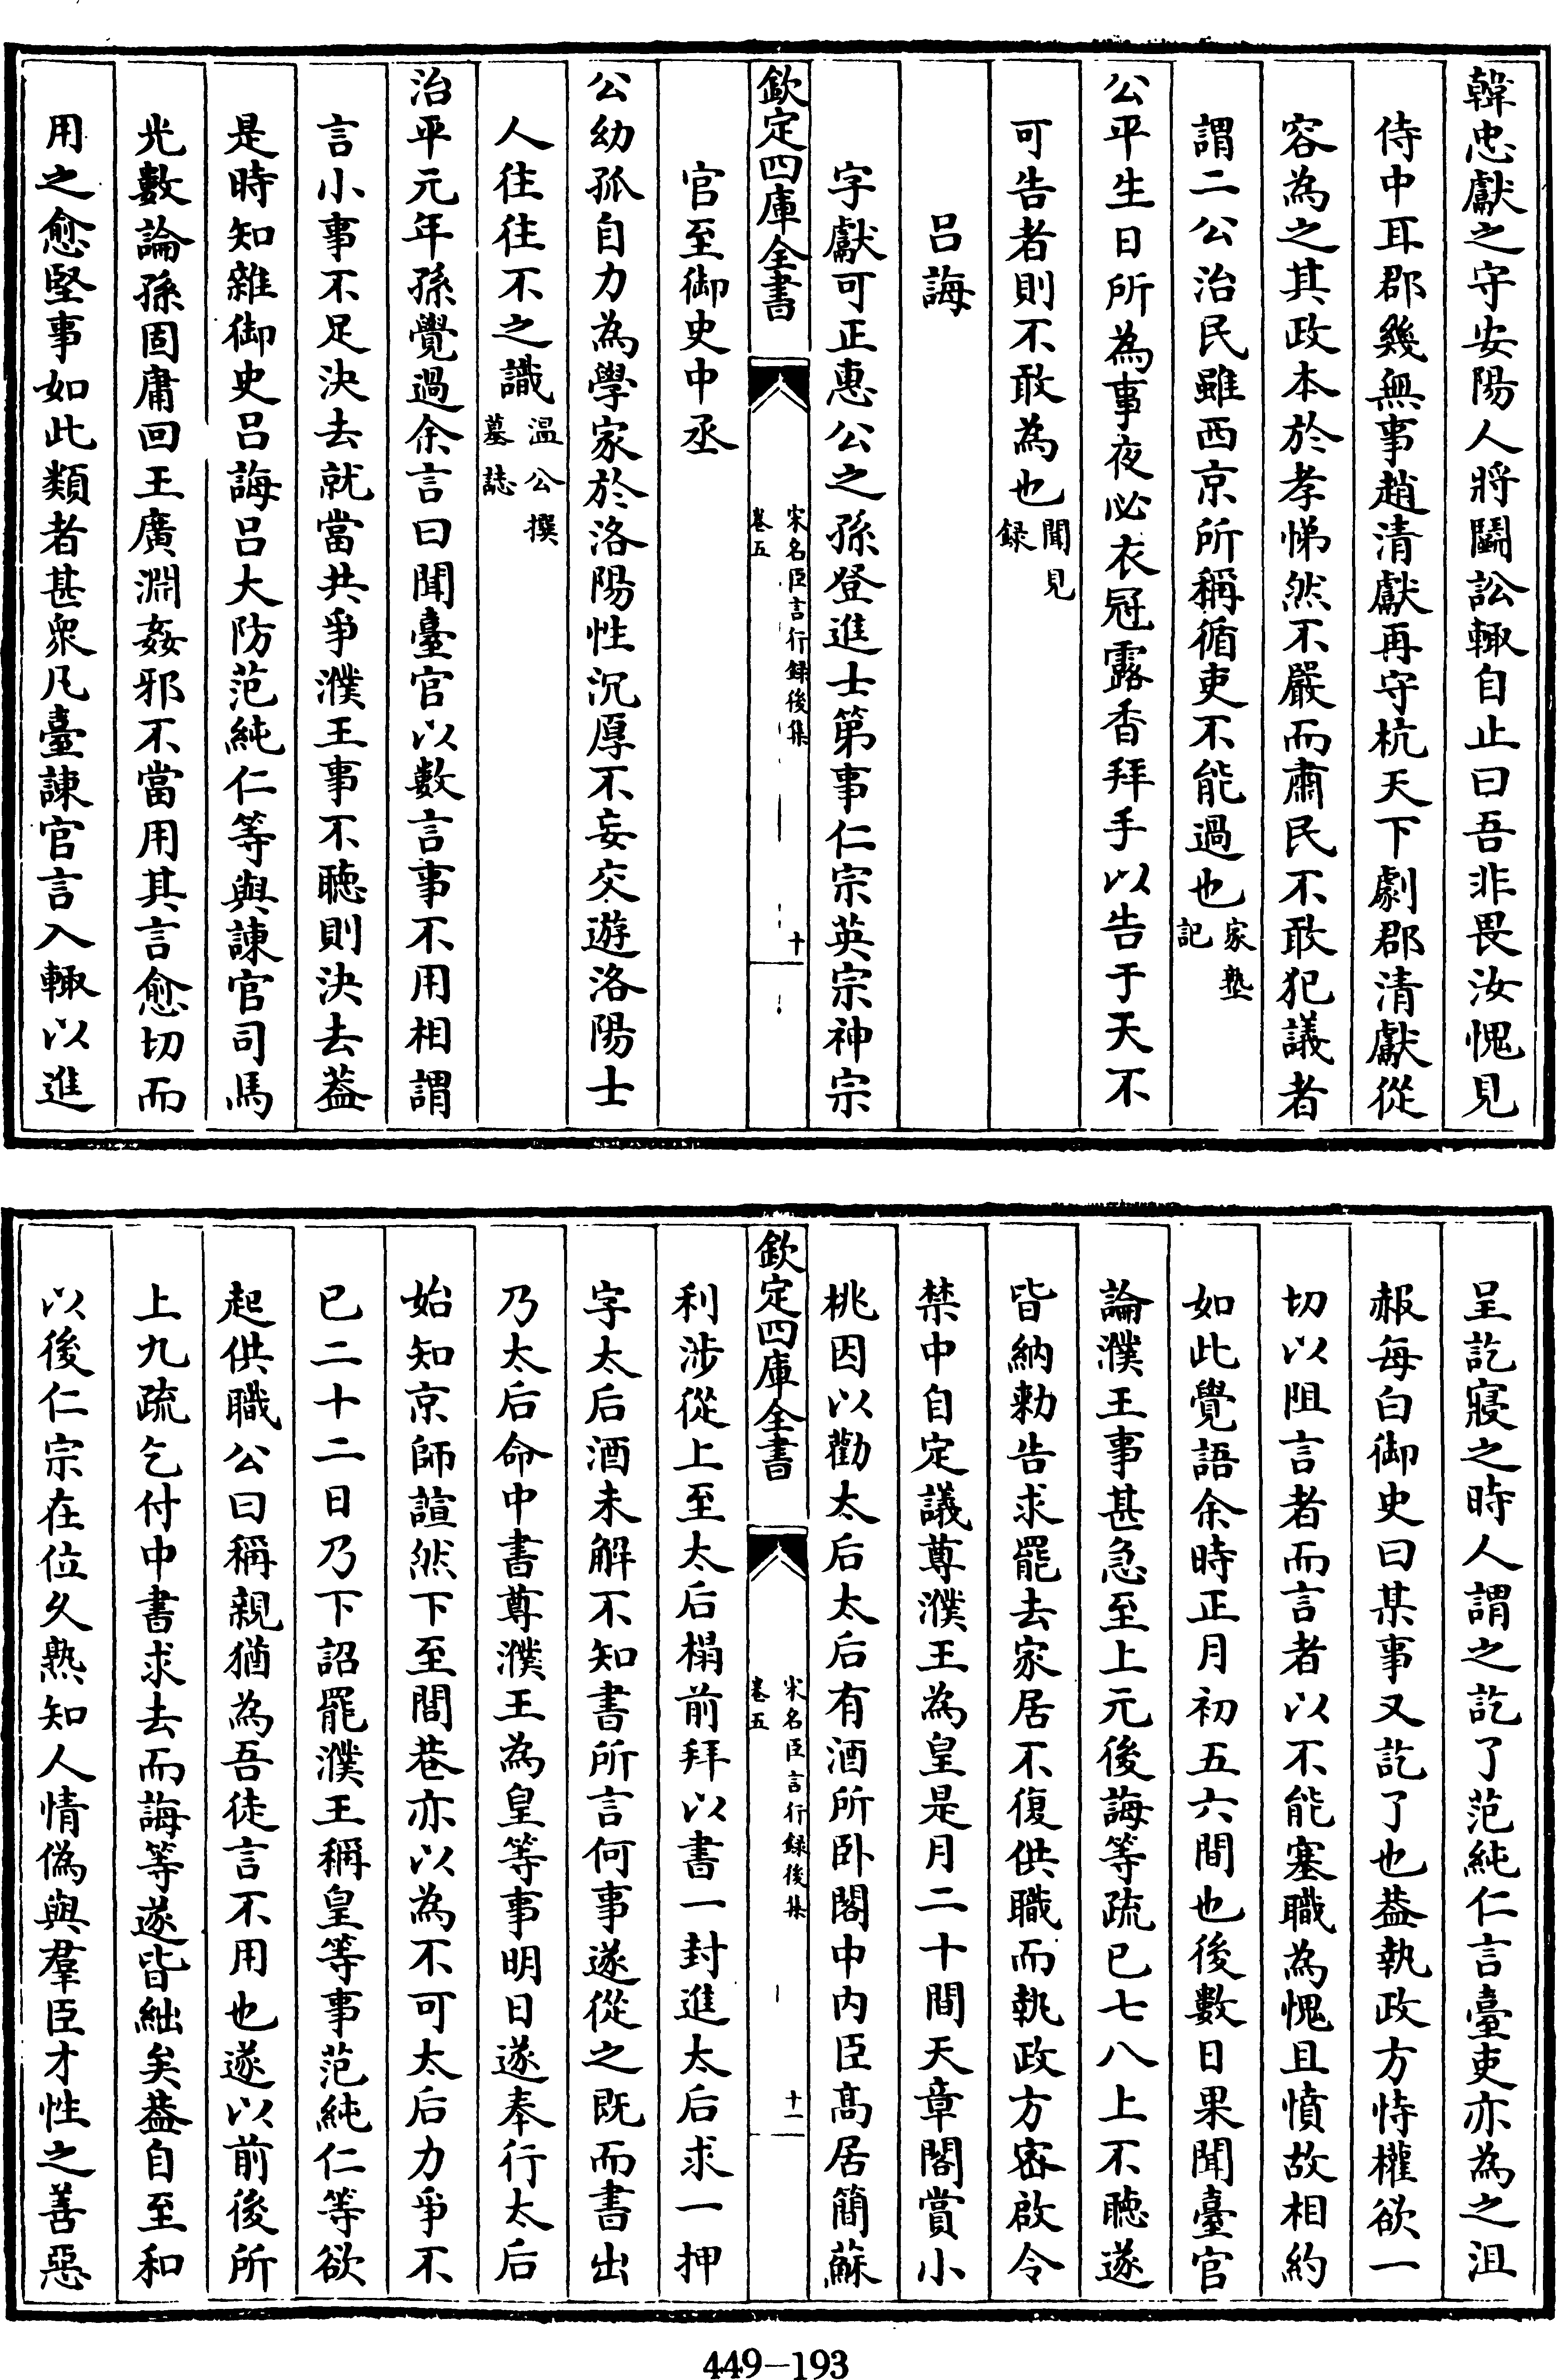 韓忠獻之守安陽人將鬭訟輙自止曰吾非畏汝愧見
侍中耳郡幾無事趙清獻再守杭天下劇郡清獻從
容為之其政本於孝悌然不嚴而肅民不敢犯議者
謂二公治民雖西京所稱循吏不能過也家塾記
公平生日所為事夜必衣冠露香拜手以告于天不
可告者則不敢為也聞見録
吕誨
字獻可正惠公之孫登進士第事仁宗英宗神宗
欽定四庫全書
宋名臣言行録後集
卷五
十
官至御史中丞
公幼孤自力為學家於洛陽性沉厚不妄交遊洛陽士
人往往不之識温公撰墓誌
治平元年孫覺過余言曰聞臺官以數言事不用相謂
言小事不足決去就當共爭濮王事不聴則決去葢
是時知雜御史吕誨吕大防范純仁等與諫官司馬
光數論孫固庸回王廣淵姦邪不當用其言愈切而
用之愈堅事如此類者甚衆凡臺諫官言入輙以進
呈訖寢之時人謂之訖了范純仁言臺吏亦為之沮
赧每白御史曰某事又訖了也葢執政方恃權欲一
切以阻言者而言者以不能塞職為愧且憤故相約
如此覺語余時正月初五六間也後數日果聞臺官
論濮王事甚急至上元後誨等疏已七八上不聴遂
皆納勅告求罷去家居不復供職而執政方密啟令
禁中自定議尊濮王為皇是月二十間天章閣賞小
桃因以勸太后太后有酒所卧閣中内臣髙居簡蘇
欽定四庫全書
宋名臣言行録後集
卷五
十一
利涉從上至太后榻前拜以書一封進太后求一押
字太后酒未解不知書所言何事遂從之既而書出
乃太后命中書尊濮王為皇等事明日遂奉行太后
始知京師諠然下至閭巷亦以為不可太后力爭不
已二十二日乃下詔罷濮王稱皇等事范純仁等欲
起供職公曰稱親猶為吾徒言不用也遂以前後所
上九疏乞付中書求去而誨等遂皆絀矣葢自至和
以後仁宗在位久熟知人情偽與羣臣才性之善惡
449—193